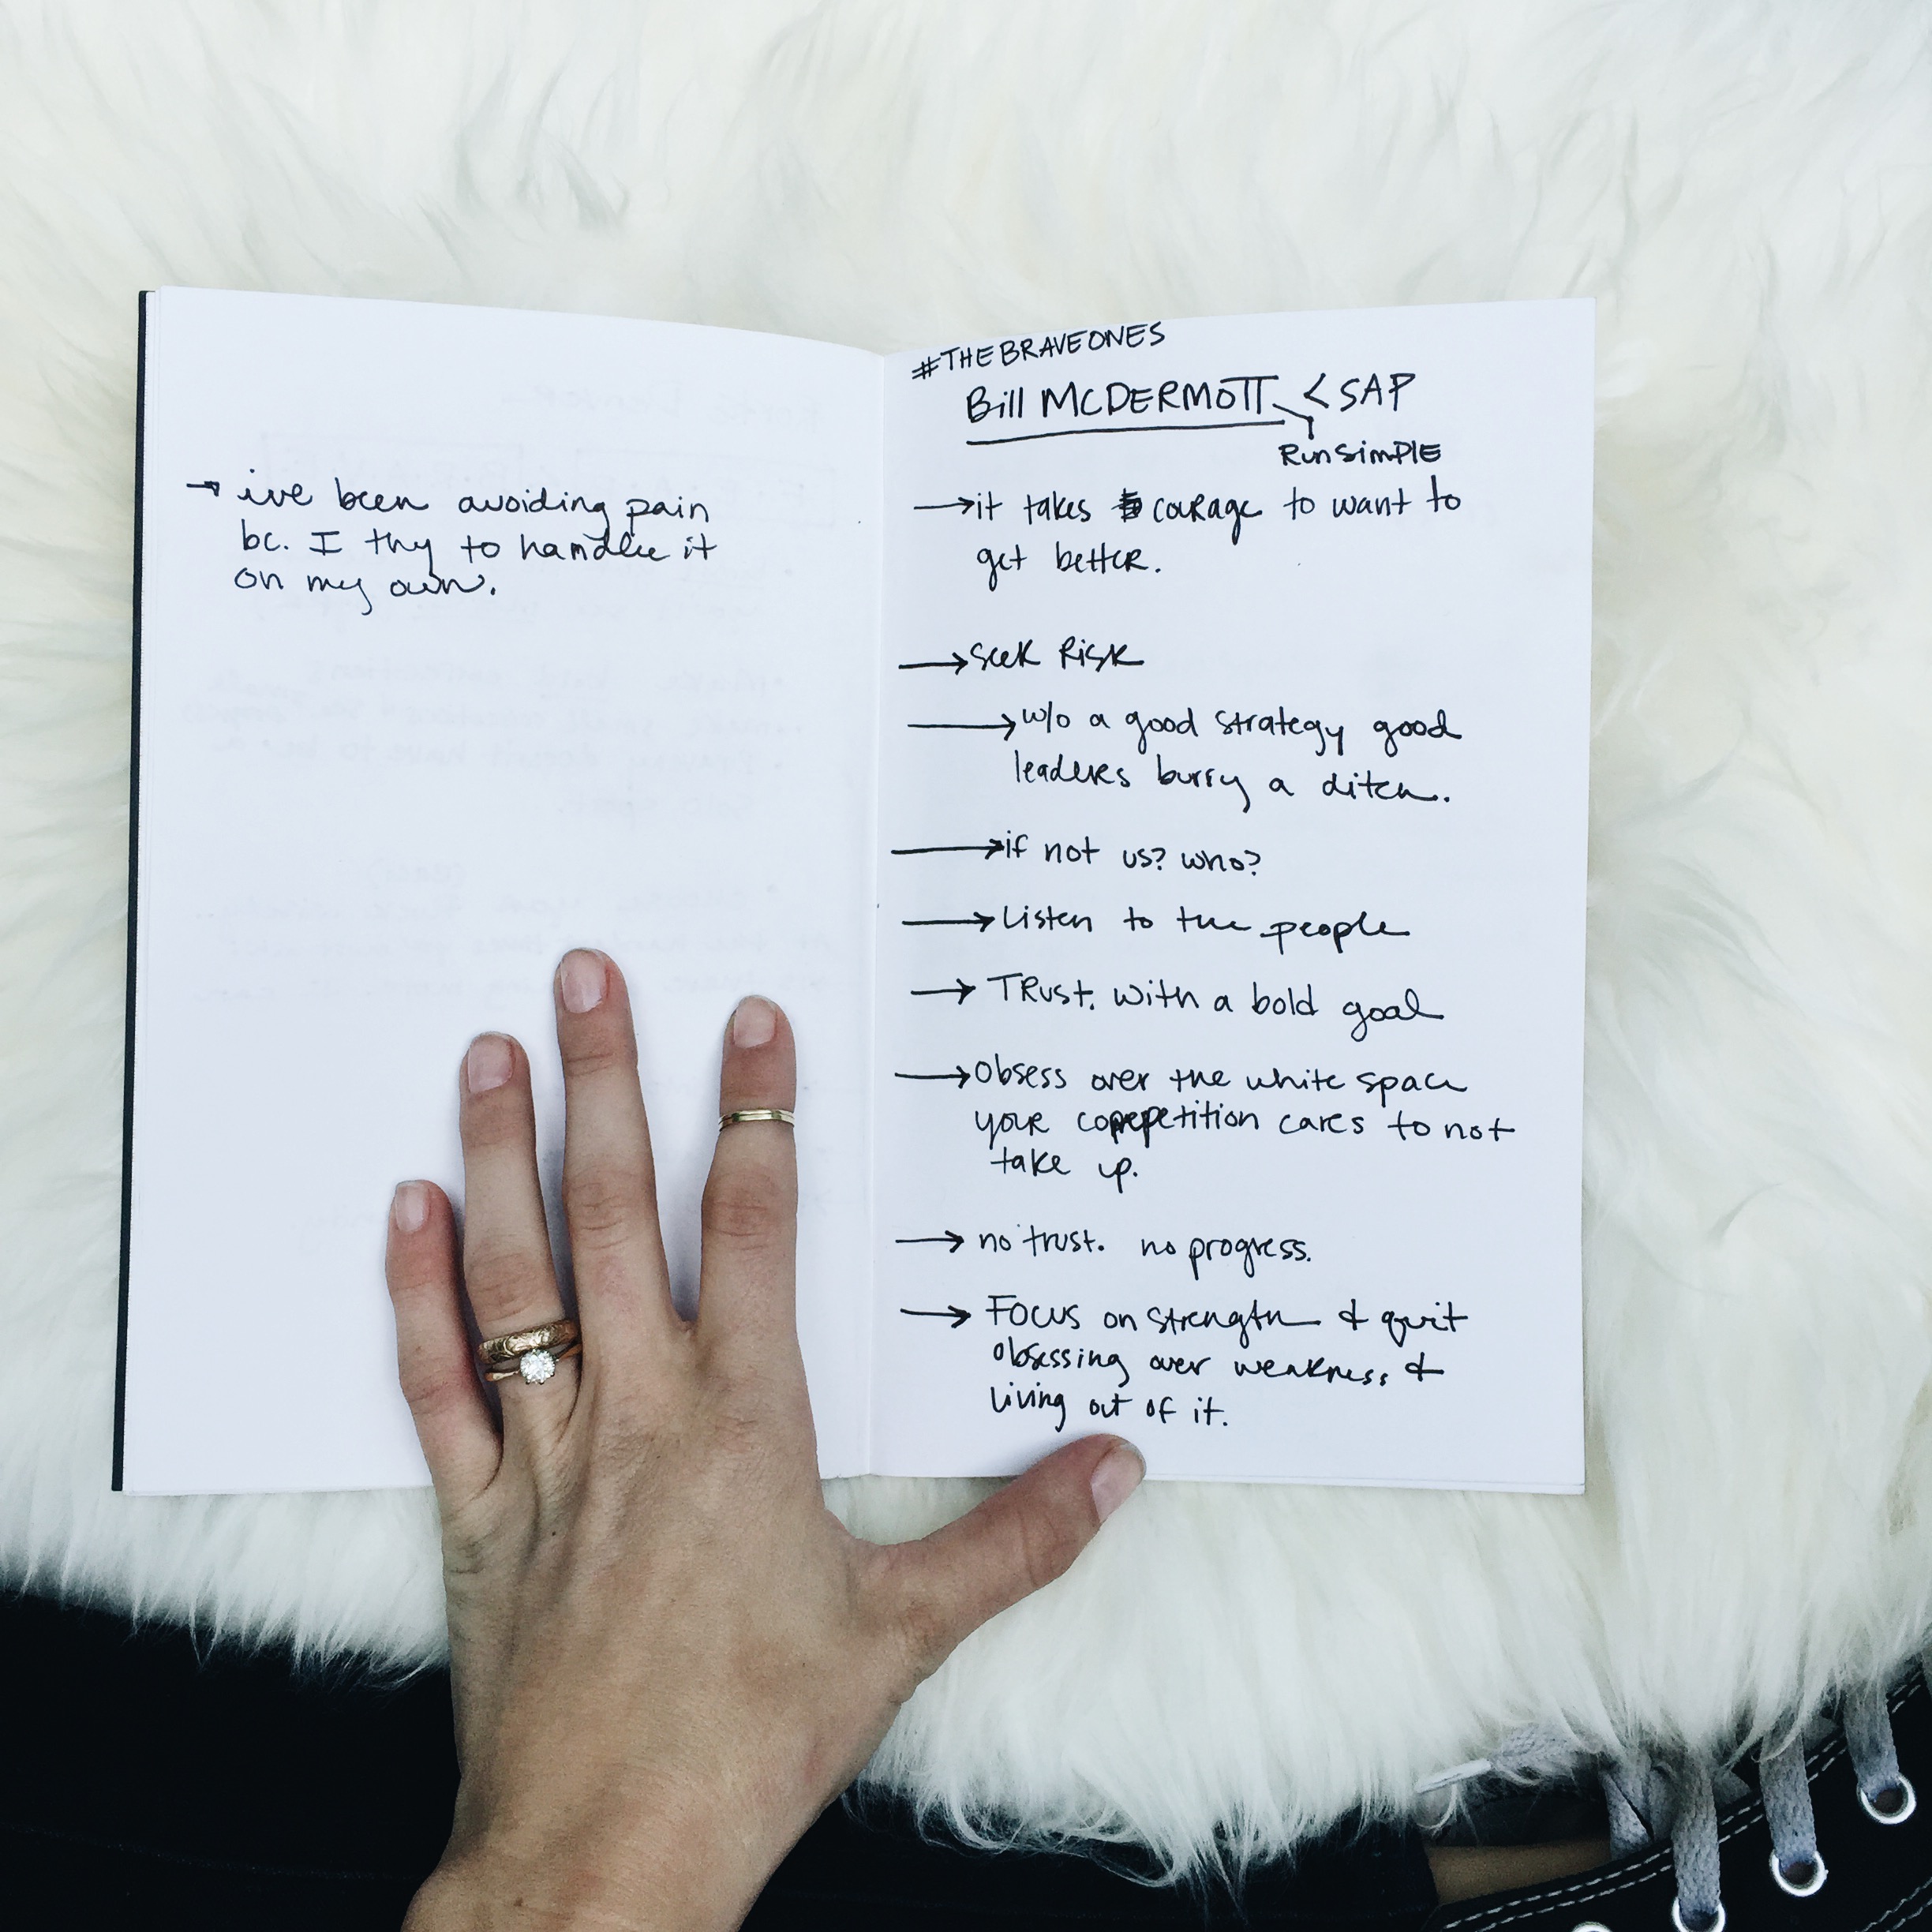 → ive been avoiding pain
bc. I try to handle it
on my own.
#THEBRAVEONES
Bill MCDERMOTT < SAP
RunSimPLE
→ it takes courage to want to
get better.
→ Seek Risk
→ w/o a good strategy good
leaders burry a ditch.
→ if not us? who?
→ Listen to the people
→ TRust. with a bold goal
→ Obsess over the white space
your competition cares to not
take up.
→ no trust. no progress.
→ Focus on strength & quit
obsessing over weakness &
living out of it.